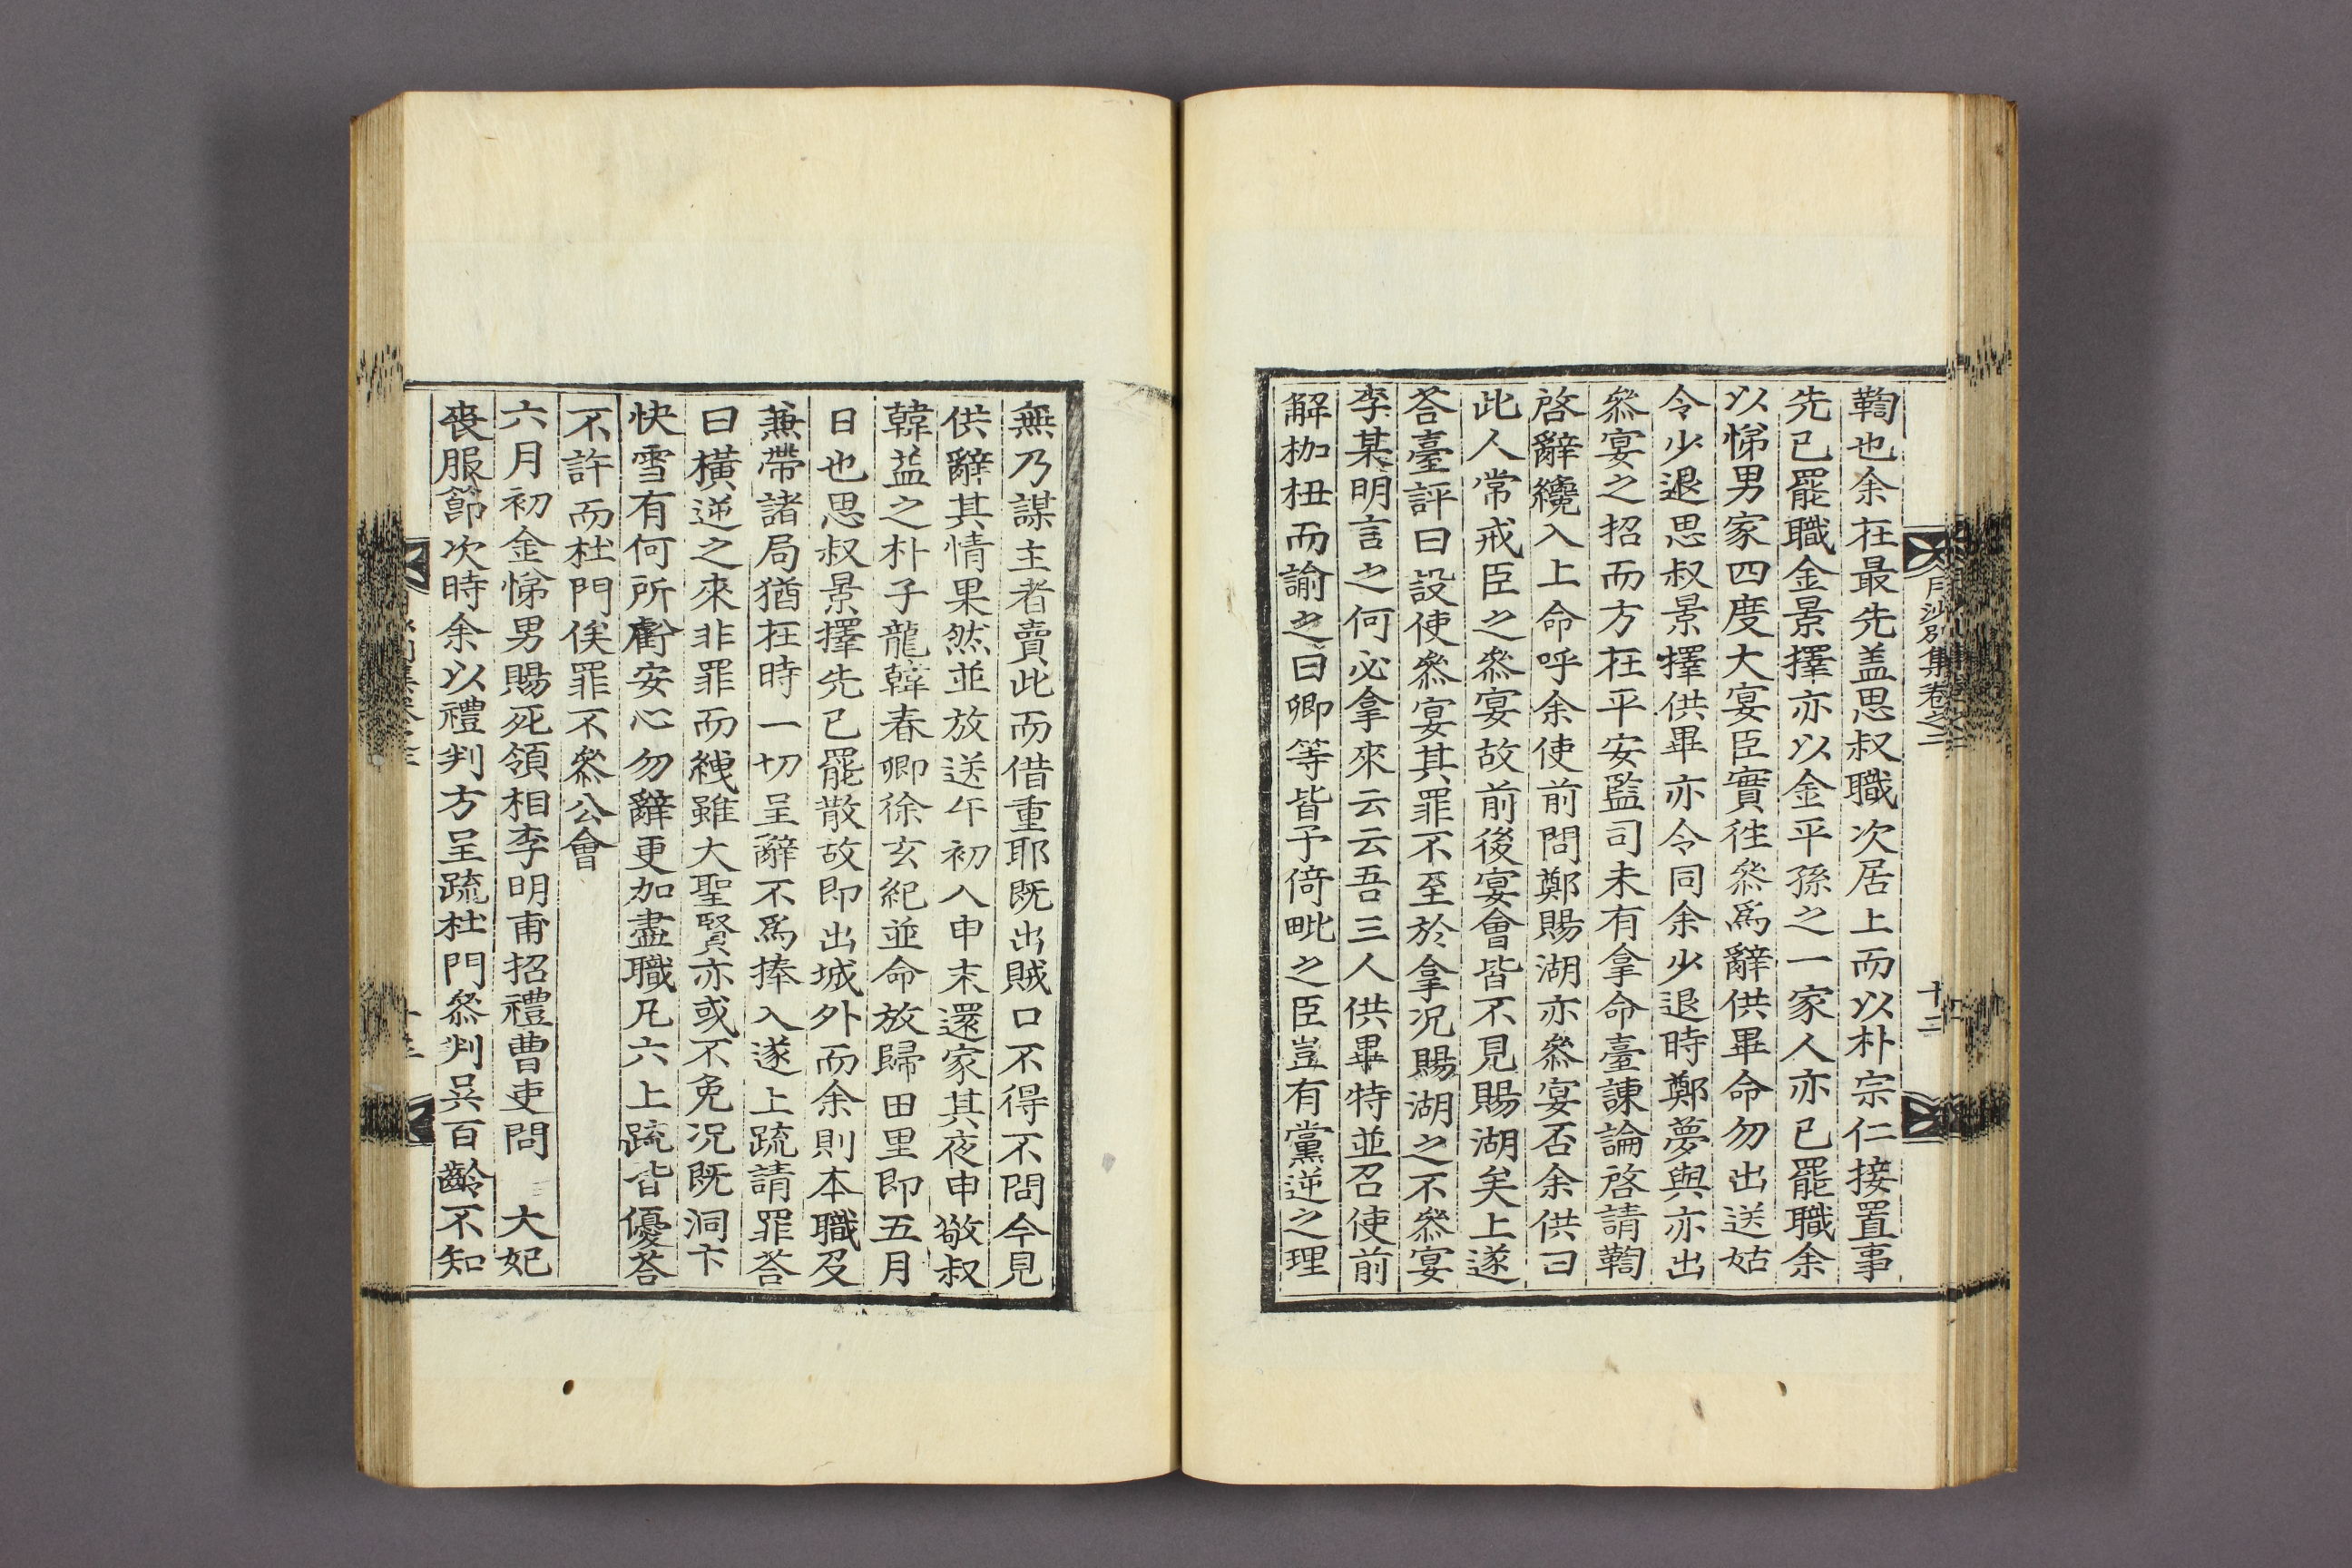 月沙別集卷之二
十二
鞫也余在最先盖思叔職次居上而以朴宗仁接置事
先已罷職金景擇亦以金平孫之一家人亦已罷職余
以悌男家四度大宴臣實徃叅爲辭供畢命勿出送姑
令少退思叔景擇供畢亦令同余少退時鄭夢與亦出
叅宴之招而方在平安監司未有拿命臺諫論啓請鞫
啓辭纔入上命呼余使前問鄭賜湖亦叅宴否余供曰
此人常戒臣之叅宴故前後宴會皆不見賜湖矣上遂
荅臺評曰設使叅宴其罪不至於拿况賜湖之不叅宴
李某明言之何必拿來云云吾三人供畢特並召使前
解枷杻而諭之曰卿等皆予倚毗之臣豈有黨逆之理
無乃謀主者賣此而借重耶既出賊口不得不問今見
供辭其情果然並放送午初入申末還家其夜申敬叔
韓益之朴子龍韓春卿徐玄紀並命放歸田里即五月
日也思叔景擇先已罷散故即出城外而余則本職及
兼帶諸局猶在時一切呈辭不爲捧入遂上疏請罪荅
曰橫逆之來非罪而絏雖大聖賢亦或不免况既洞卞
快雪有何所虧安心勿辭更加盡職凡六上疏皆優荅
不許而杜門俟罪不叅公會
六月初金悌男賜死領相李明甫招禮曹吏問 大妃
喪服節次時余以禮判方呈疏杜門叅判吳百齡不知